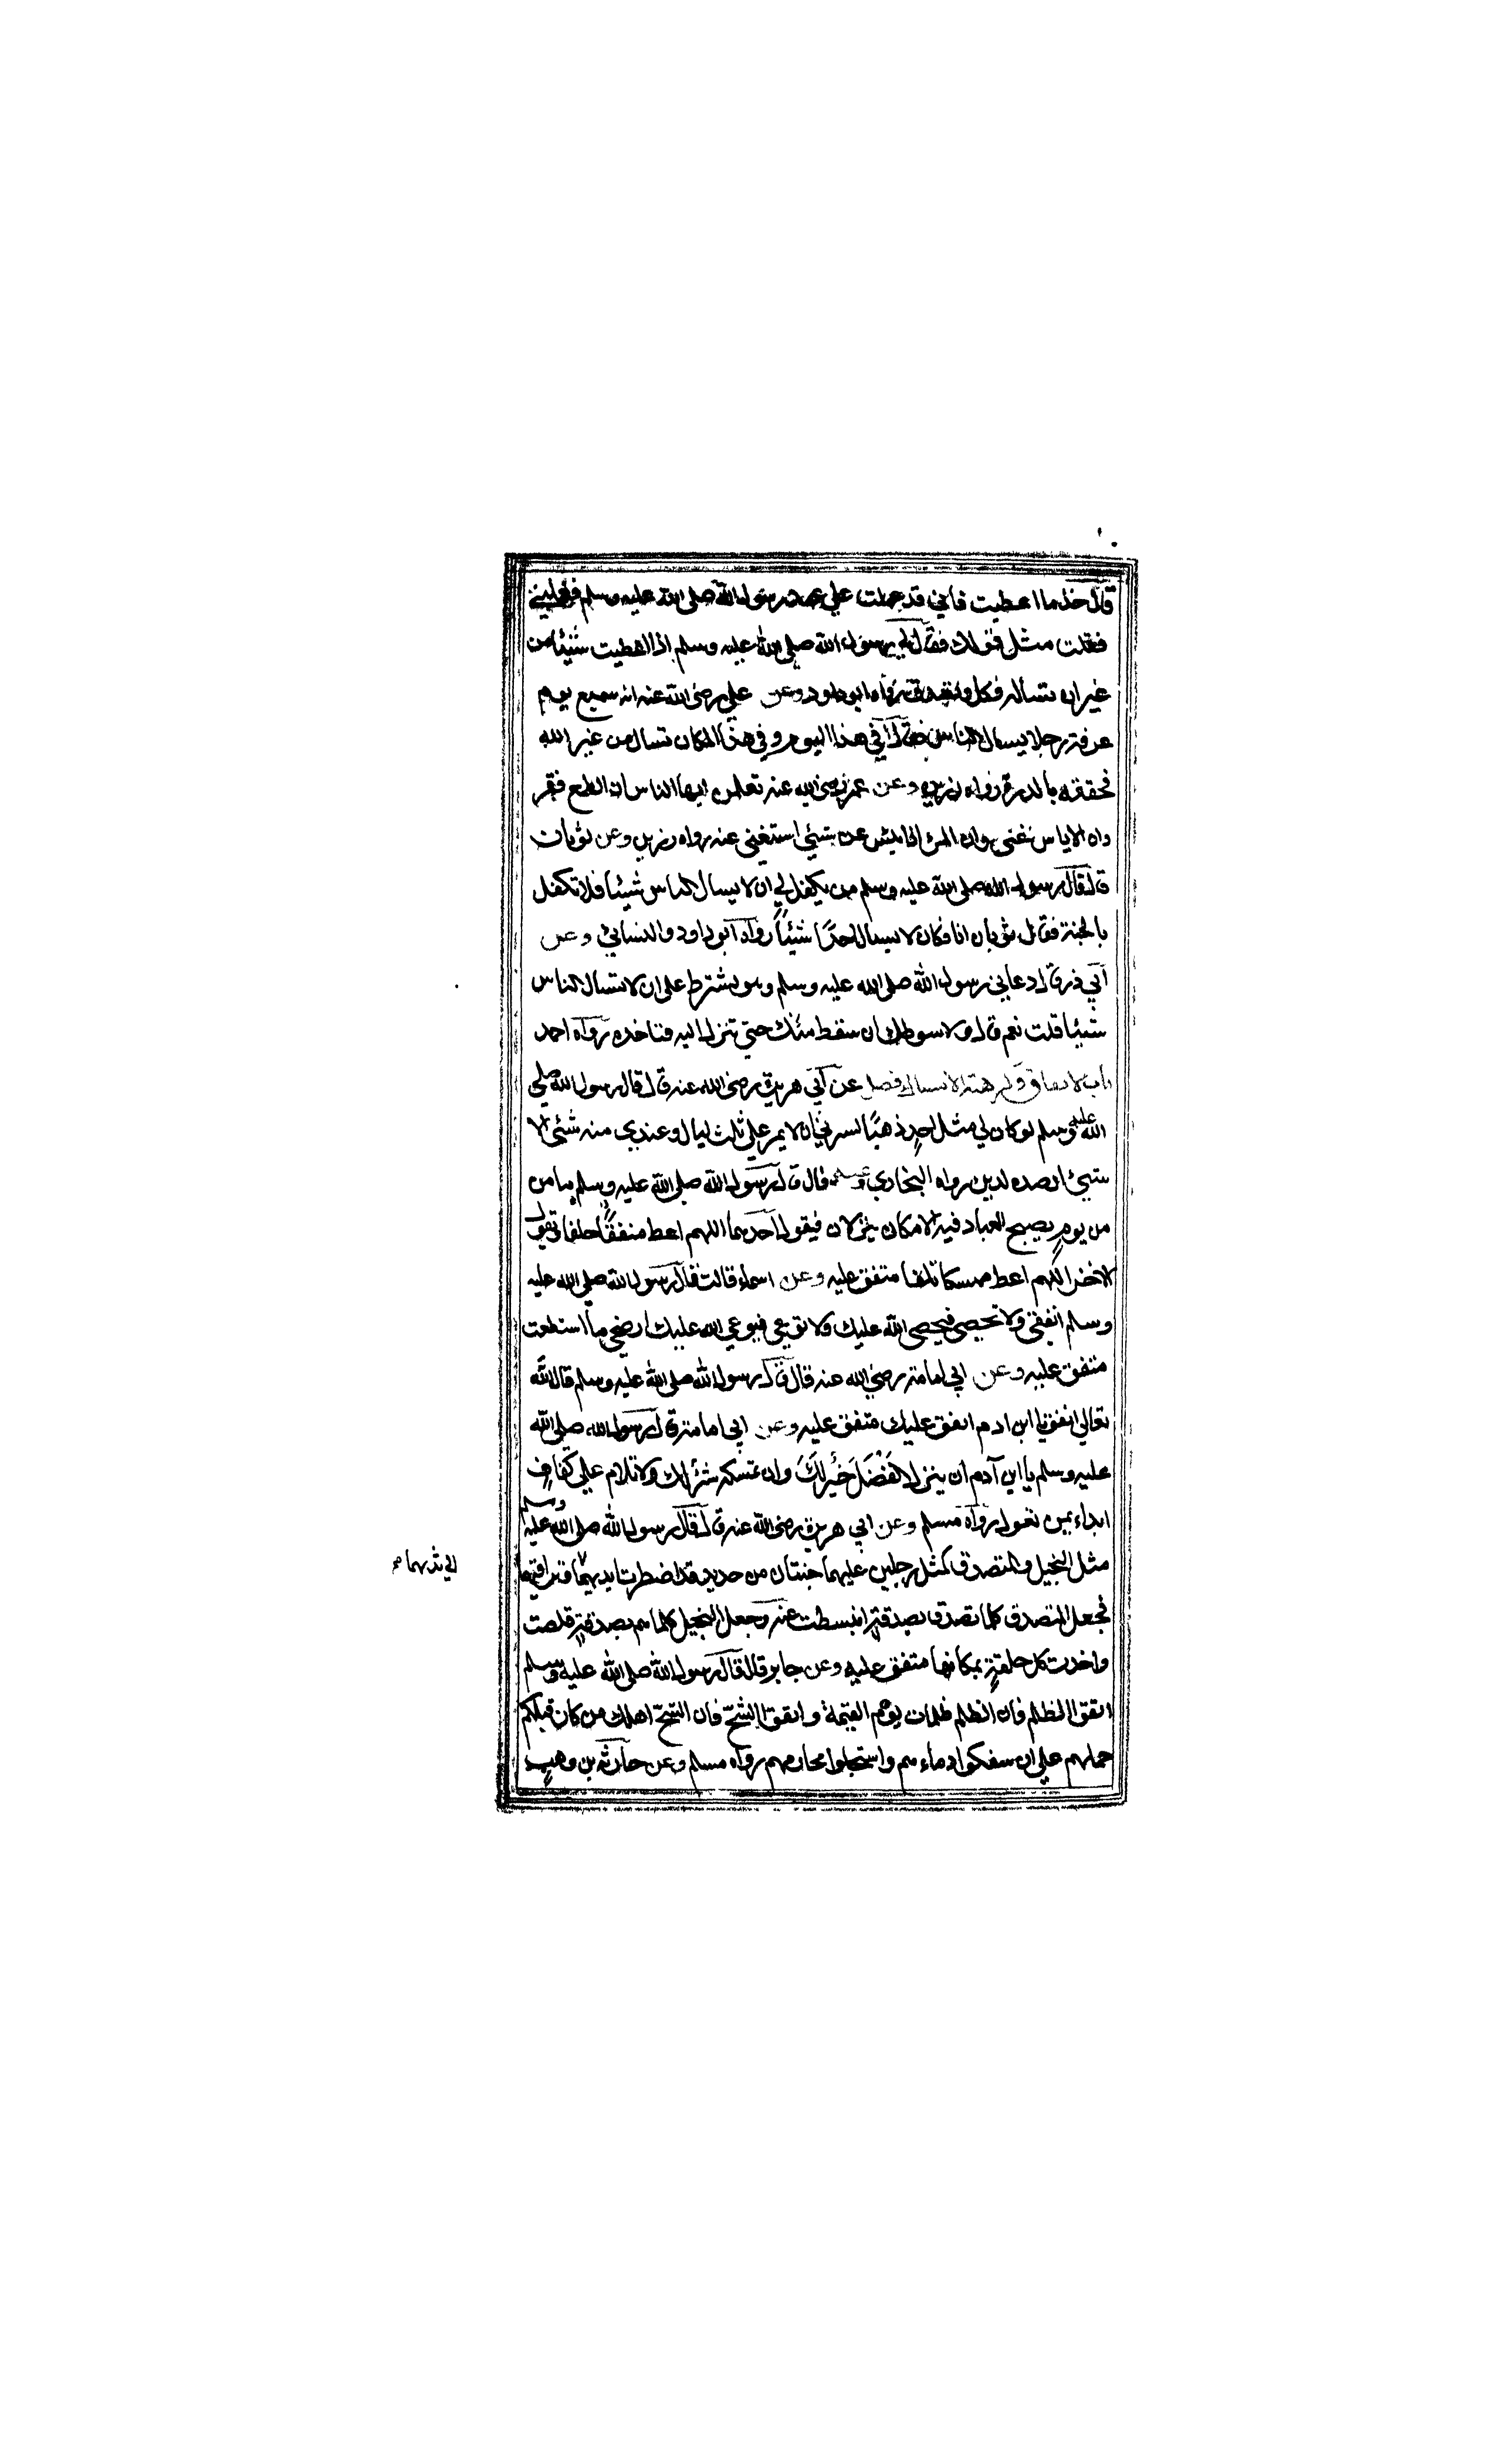 قال خذ ما اعطيت فاني قد عملت علي عهد رسول الله صلى الله عليه وسلم فعملني
فقلت مثل قولك فقال لي رسول الله صلى الله عليه وسلم اذا اعطيت شيئا من
غير ان تساله فكل وتصدق رواه ابو داود وعن علي رضى الله عنه انه سمع يوم
عرفة رجلا يسال الناس فقال افي هذا اليوم وفي هذا المكان تسال من غير الله
فخفقه بالدرة رواه رزين وعن عمر رضي الله عنه تعلمن ايها الناس ان الطمع فقر
وان الاياس غنى وان المرء اذا يئس عن شيئ استغنى عنه رواه رزين وعن ثوبان
قال قال رسول الله صلى الله عليه وسلم من يكفل لي ان لا يسال الناس شيئا فلاتكفل
بالجنة فقال ثوبان انا فكان لا يسال احدًا شيئاً رواه ابو داود والنسائي وعن
أبي ذر قال دعاني رسول الله صلى الله عليه وسلم وهو يشترط على ان لا تسال الناس
شيئا قلت نعم قال ولا سوطك ان سقط منك حتي تنزل اليه فتاخذه رواه احمد
باب الانفاق وكراهية الامساك فصل عن أبي هريرة رضى الله عنه قال قال رسول الله صلي
الله عليه وسلم لو كان لي مثل احدٍ ذهبًا لسرني ان لا يمر علي ثلث ليال وعندي منه شئى الا
شيئ ارصده لدين رواه البخاري وعنه قال قال رسول الله صلى الله عليه وسلم ما من
من يومٍ يصبح العباد فيه الا ملكان ينزلان فيقول احدهما اللهم اعط منفقًا خلفا ويقول
الاخر اللهم اعط ممسكا تلفا متفق عليه وعن اسماء قالت قال رسول الله صلى الله عليه
وسلم انفقى ولا تحصى فيحصى الله عليك ولا توعي فيوعي الله عليك ارضخي ما استطعت
متفق عليه وعن ابي امامة رضي الله عنه قال قال رسول الله صلى الله عليه وسلم قال الله
تعالي انفق يا ابن ادم انفق عليك متفق عليه وعن ابى امامة قال رسول الله صلى الله
عليه وسلم يا ابن آدم ان تبذل الفَضْلَ خَيْرٌ لَكَ وان تمسكه شرٌ لك ولا تلام علي كفافٍ
ابداء بمن تعول رواه مسلم وعن ابي هريرة رضى الله عنه قال قال رسول الله صلى الله عليه وسلم
مثل البخيل والمتصدق كمثل رجلين عليهما جنتان من حديد قد اضطرت ايديهما وتراقيهما
الي ثديهما
فجعل المتصدق كلما تصدق بصدقةٍ انبسطت عنه وجعل البخيل كلما هم بصدقةٍ قلصت
واخذت كل حلقةٍ بمكانها متفق عليه وعن جابر قال قال رسول الله صلى الله عليه وسلم
اتقوا الظلم فان الظلم ظلمات يوم القيمة واتقوا الشحّ فان الشحّ اهلك من كان قبلكم
حملهم علي ان سفكوا دماءهم واستحلوا محارمهم رواه مسلم وعن حارثة بن وهبٍ